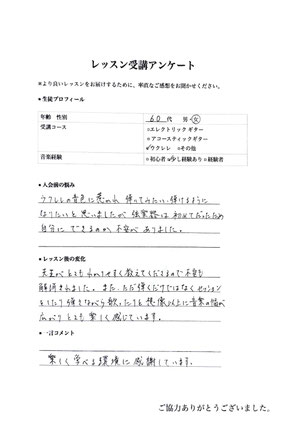 レッスン受講アンケート
※より良いレッスンをお届けするために、率直なご感想をお聞かせください。
●生徒プロフィール
年齢 性別 60代 男・女
受講コース □エレクトリックギター
□アコースティックギター
☑ウクレレ □その他
音楽経験 □初心者 ☑少し経験あり □経験者
●入会前の悩み
ウクレレの音色に惹かれ 弾ってみたい、弾けるように
なりたいと思いましたが 弦楽器は 初めてだったため
自分に できるのか 不安が ありました。
●レッスン後の変化
先生が とても わかりやすく教えてくださるので 不安も
解消されました。また、ただ弾くだけではなく セッション
をしたり 弾きながら 歌ったりと 想像以上に音楽の幅が
広がり とても 楽しく 感じています。
●一言コメント
楽しく 学べる環境に 感謝しています。
ご協力ありがとうございました。